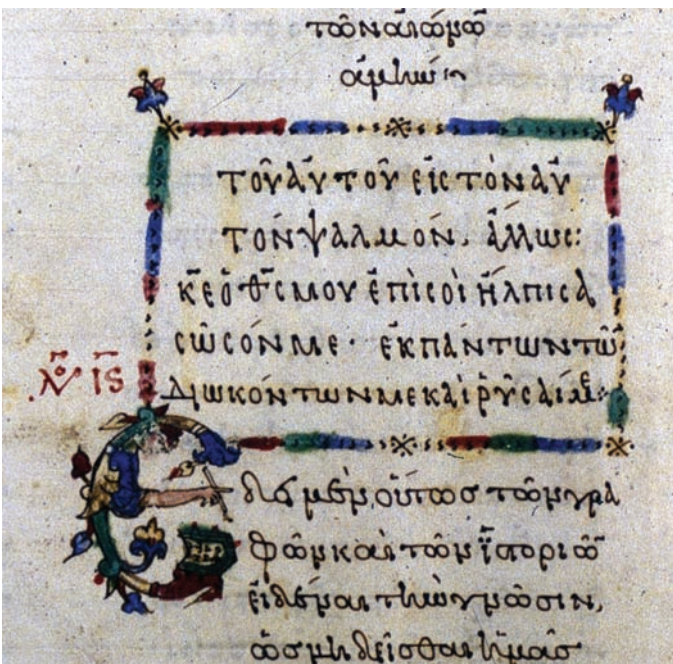 τῶν αἰώνων
ἀμήν:~
τοῦ αὐτοῦ εἰς τὸν αὐ
τὸν ψαλμόν. ἄλλως:
κ̅ε̅ ὁ θ̅ς̅ μου ἐπὶ σοὶ ἤλπισα
σῶσόν με· ἐκ πάντων τῶ̅
διωκόντων με καὶ ῥῦσαί με:
λο ιϛ
ἔδει μὲν οὕτως τῶν γρα
φῶν καὶ τῶν ἱστοριῶ̅
εἰδέναι τὴν γνῶσιν,
ὡς μὴ δεῖσθαι ἡμᾶς